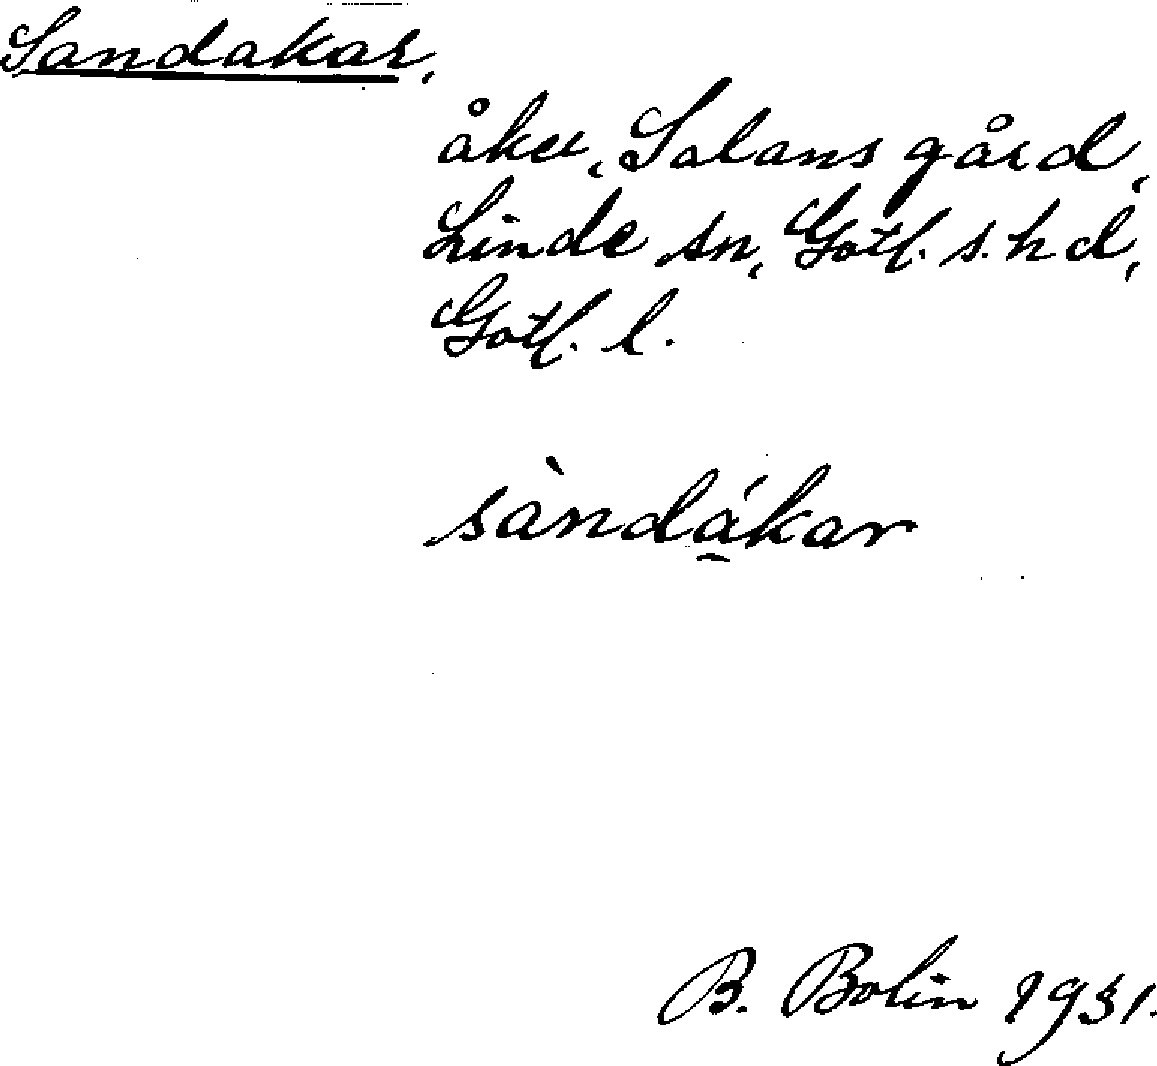 Sandakar,
åker, Salans gård,
Linde sn, Gotl. s. hd,
Gotl. l.
sàndá̱kar
B. Bolin 1931.